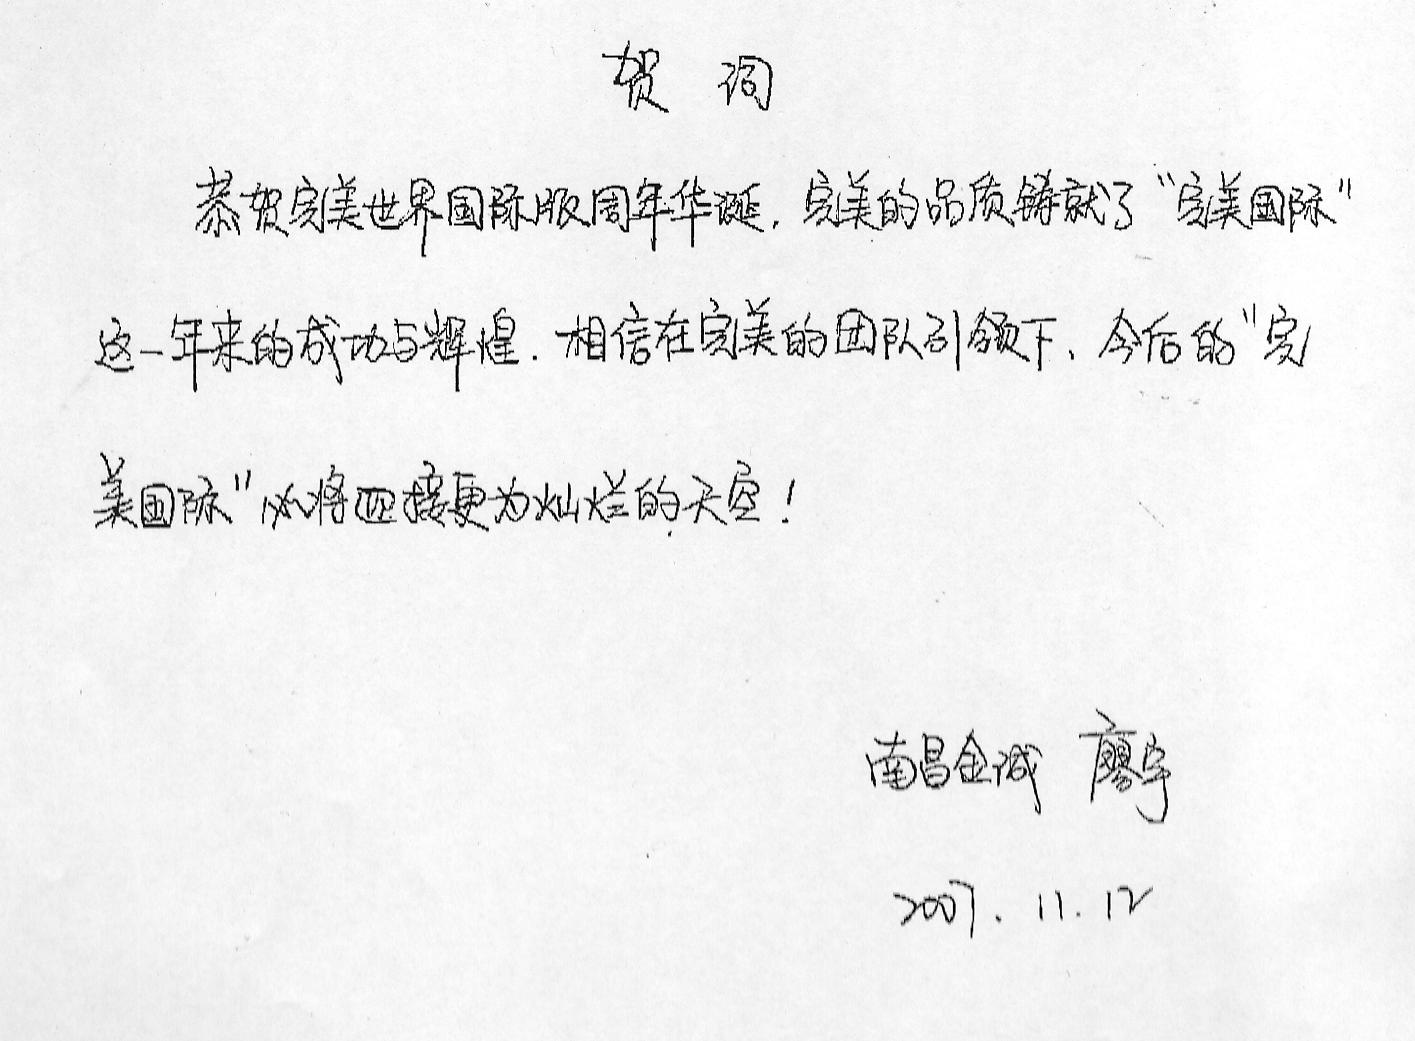 贺 词
恭贺完美世界国际版周年华诞，完美的品质铸就了“完美国际”
这一年来的成功与辉煌．相信在完美的团队引领下、今后的“完
美国际”必将迎接更为灿烂的天空！
南昌金诚 廖宇
2007.11.12